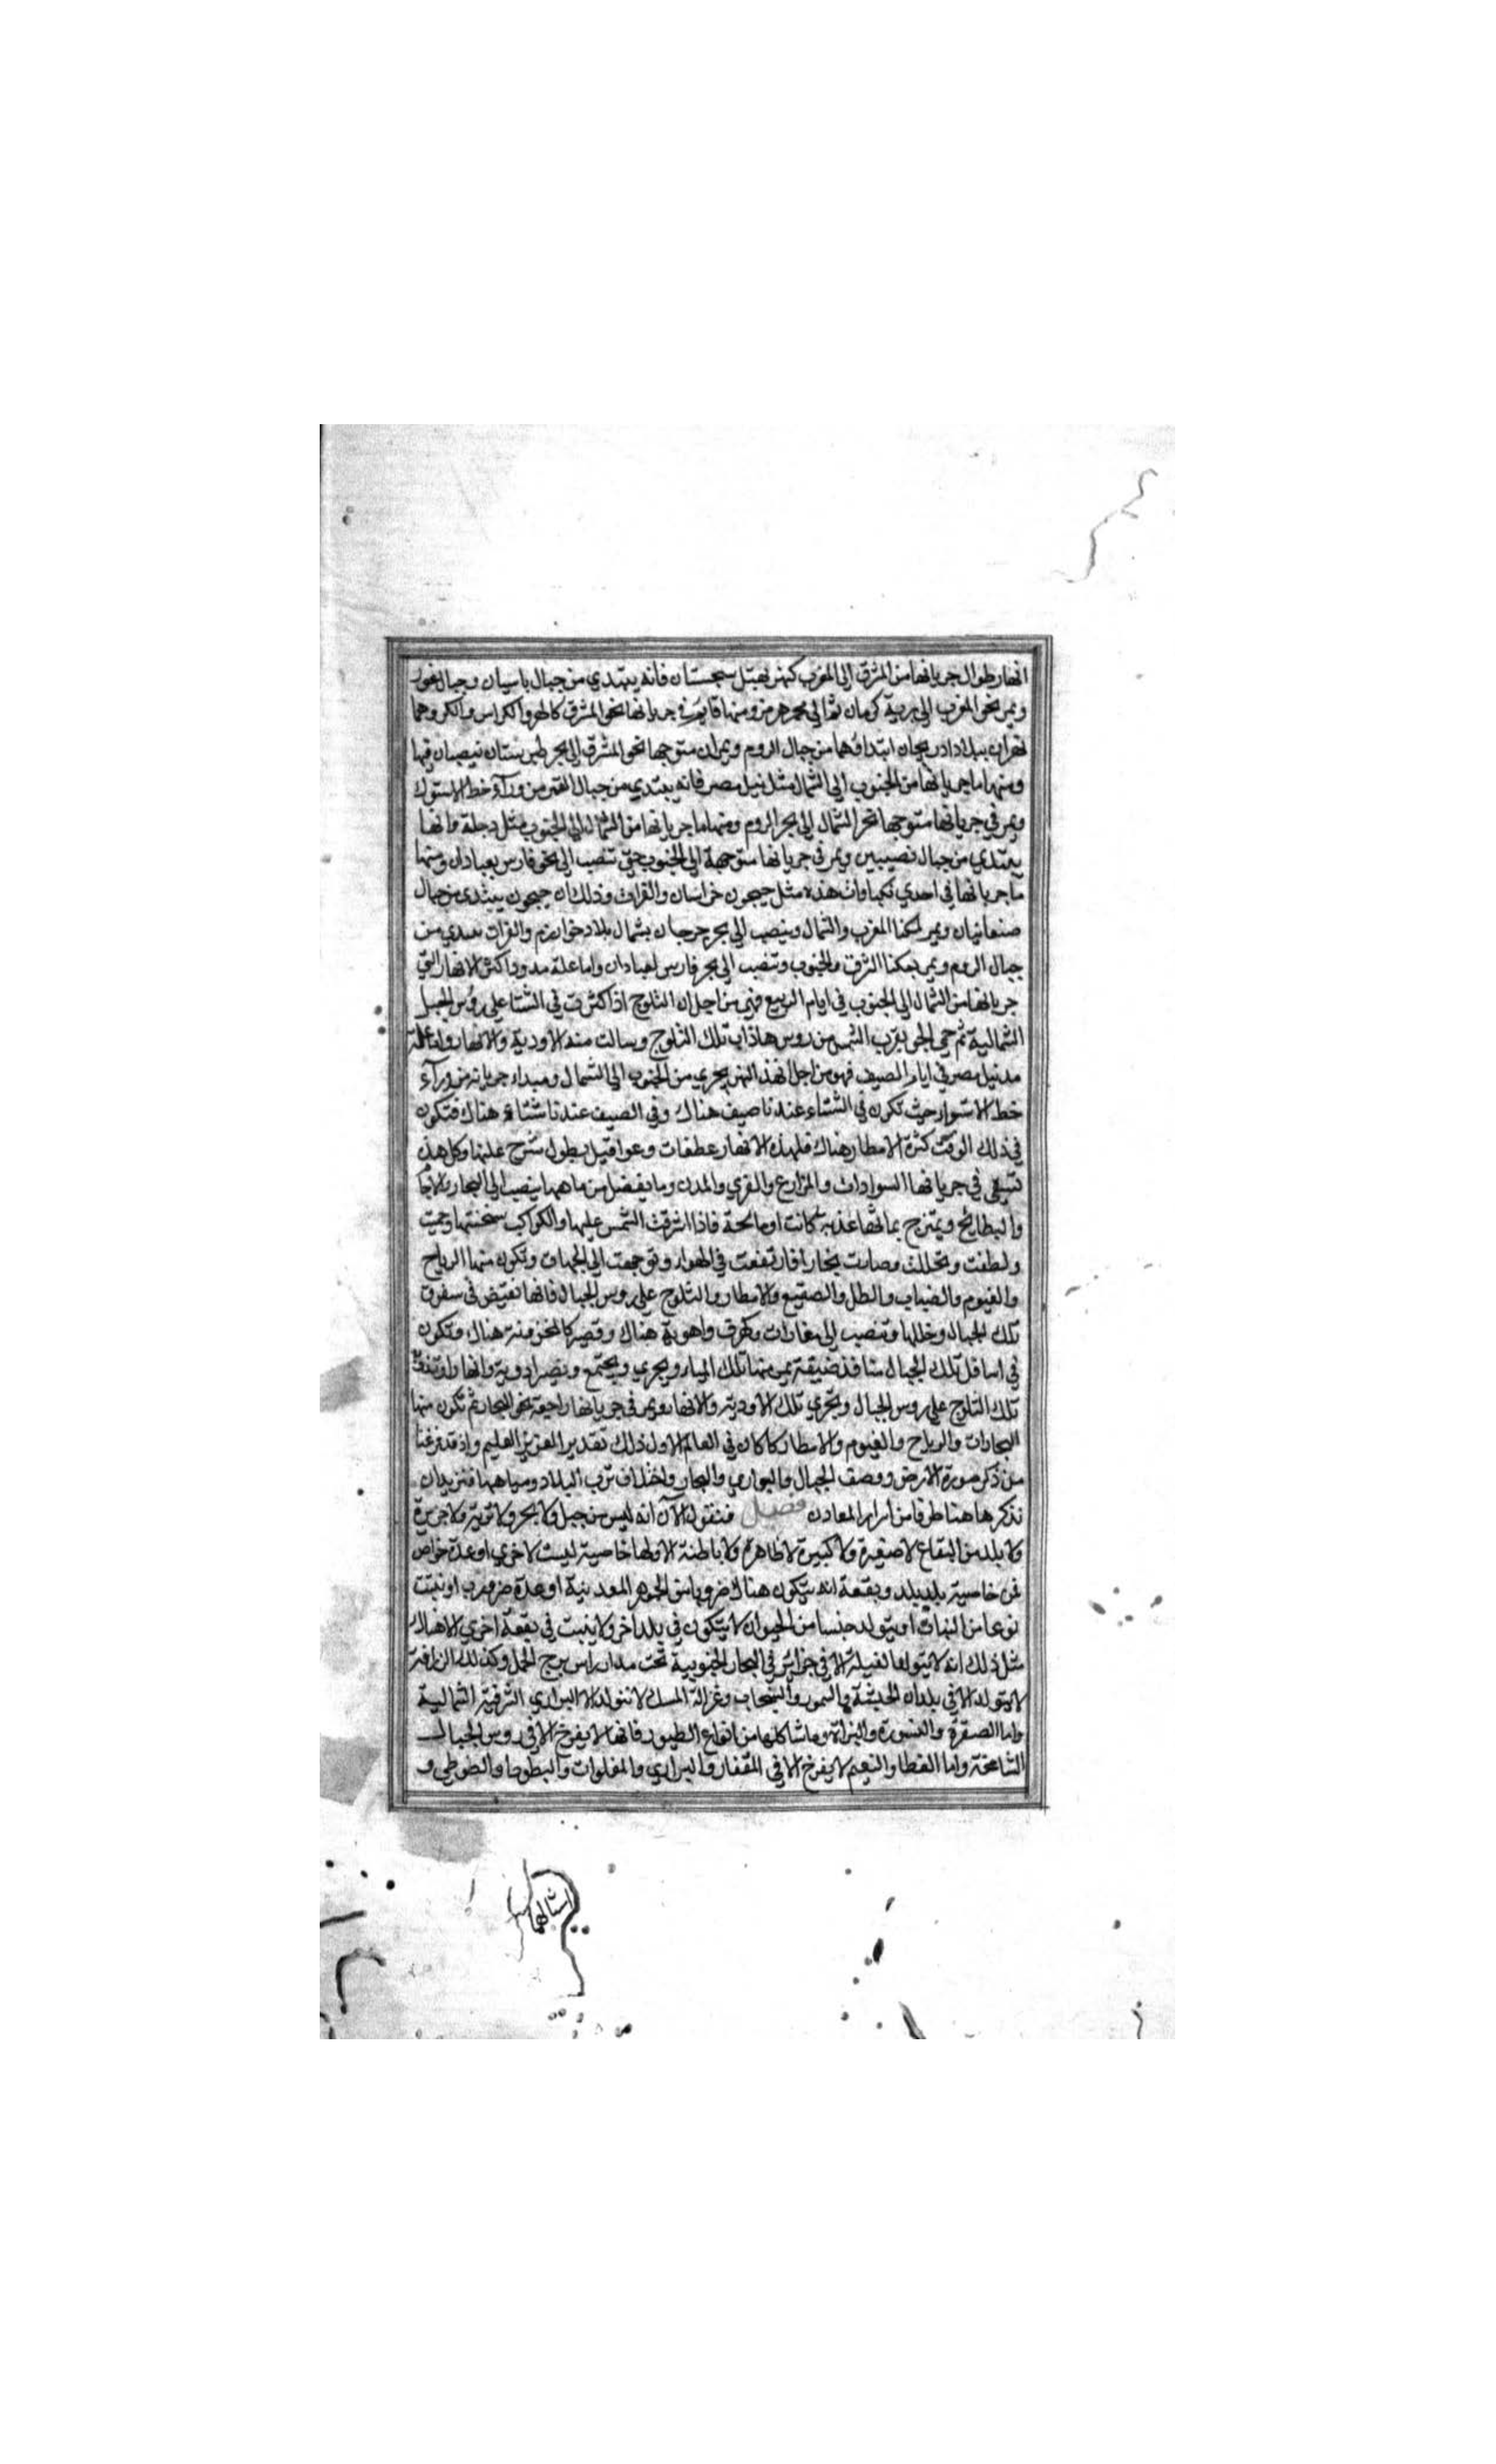 انهار طوال جريانها من المشرق الى المغرب كنهر نهبتل سجستان فانه يبتدي من جبال باسيان وجبال غور
ويمر نحو المغرب الى برية كرمان ثم الى بحر هرمز ومنها قايم في جريانها نحو المشرق كالهر والكراس والكر وهما
نهران ببلاد ادربيجان ابتداؤهما من جبال الروم ويمران متوجها نحو المشرق الى بحر طبرستان نيصبان فيها
ومنها ما جريانها من الجنوب الى الشمال مثل نيل مصر فانه يبتدي من جبال القمر من ورآء خط الاستوآء
ويمر في جريانها متوجها نحو الشمال الى بحر الروم ومنها ما جريانها من الشمال الى الجنوب مثل دجلة وانها
يبتدي من جبال نصيبين ويمر في جريانها متوجهة الى الجنوب حتى تنصب الى نحو فارس بعبادان ومنها
ما جريانها في احدي نكباوات هذه مثل جيحون خراسان والفرات وذلك ان جيحون يبتدي من جبال
صنعانيان ويمر لمكنا المغرب والشمال وينصب الى بحر جرجان بشمال بلاد خوارزم والفرات يبتدي من
جبال الروم ويمر بمكنا الشرق والجنوب وتنصب الى بحر فارس لعبادان واما علة مدود اكثر الانهار التي
جريانها من الشمال الى الجنوب في ايام الربيع فهي من اجل ان الثلوج اذا كثرت في الشتا على روس الجبل
الشمالية ثم حمي الجو بقرب الشمس من روسها ذاب تلك الثلوج وسالت منه الاودية والانهار واما علة
مد نيل مصر في ايام الصيف فهو من اجل ان هذ النهر يجري من الجنوب الى الشمال ومبداء جريانه من ورآء
خط الاستوار حيث تكون في الشتاء عندنا صيف هناك وفي الصيف عندنا شتاء هناك فتكون
في ذلك الوقت كثرة الامطار هناك فلهذه الانهار عطفات وعواقيل يطول شرح علتها وكل هذه
تسقي في جريانها السوادات والمزارع والقري والمدن وما يفضل من ماهها ينصب الى البحار والاجا
والبطايح ويمتزج بماثها عذبة كانت او مالحة فاذا اشرقت الشمس عليها والكواكب سخنتها وحميت
ولطفت وتحللت وصارت بخارا فارتفعت في الهواء وتوجهت الى الجهات وتكون منها الرياح
والغيوم والضباب والطل والصقيع والامطار والثلوج على روس الجبال فانها تغيض في سقوق
تلك الجبال وخللها وتنصب الى مغارات وكهرف واهوية هناك وقصير كالمخزونة هناك وتكون
في اسافل تلك الجبال منافذ ضيقة يمر منها تلك المياه ويجري ويجتمع ويصير ادوية وانهار وتذوب
تلك الثلاج على روس الجبال وتجري تلك الاودية والانهار ويمر في جريانها راجعة نحو البحار ثم تكون منها
البخارات والرياح والغيوم والامطار كما كان في العام الاول ذلك تقدير العزيز العليم واذ قد فرغنا
من ذكر صورة الارض ووصف الجبال والبواري والبحار واختلاف ترب البلاد ومياهها فنريد ان
نذكرها هنا طرفا من اسرار المعادن فصل فنقول الآن انه ليس من جبل ولا بحر ولا تربة ولا جزيرة
ولا بلد من البقاع لا صغيرة ولا كبيرة لا ظاهرة ولا باطنة الا ولها خاصية ليست لاخري او عدة خواص
فمن خاصية بلد بلد وبقعة انه يتكون هناك ضروبا من الجوهر المعدنية او عدة ضروب او نبتت
نوعا من النبات او يتولد جنسا من الحيوان لا يتكون في بلد اخر ولا ينبت في بقعة اخري الا هناك
مثل ذلك انه لا يتولد الفيلة الا في جزائر في البحار الجنوبية تحت مدار راس برج الحمل وكذلك الزرافة
لا يتولد الا في بلدان الحبشة والسمور والسنجاب وغزالة المسك لا تتولد الا البراري الشرقية الشمالية
واما الصقرة والنسورة والبزاة وما شاكلها من انواع الطيور فانها لا يفرخ الا في روس الجبال
الشامخة واما القطا والنعيم لا يفرخ الا في القفار والبراري والمفلوات والبطوط والطوطي و
امثالها